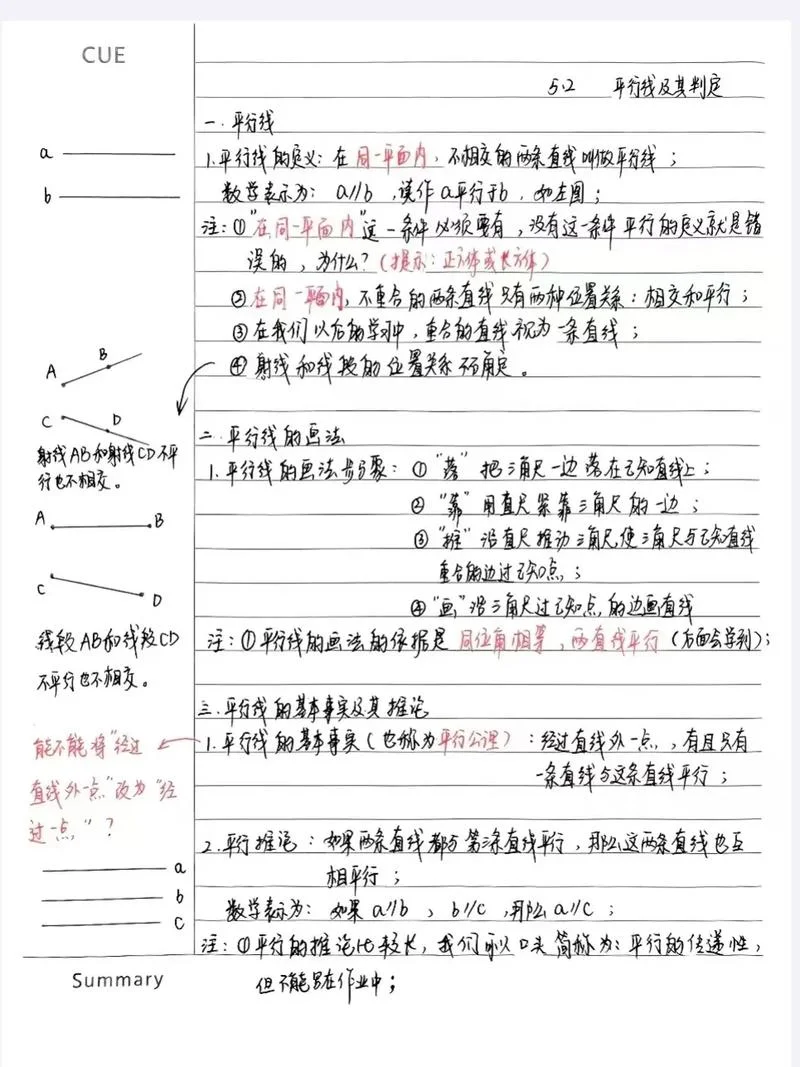 CUE
5.2 平行线及其判定
一.平行线
a
b
1.平行线的定义：在同一平面内，不相交的两条直线叫做平行线；
数学表示为：a∥b，读作a平行于b，如左图；
注：①"在同一平面内"这一条件必须要有，没有这一条件平行的定义就是错
误的，为什么？（提示：正方体或长方体）
②在同一平面内，不重合的两条直线只有两种位置关系：相交和平行；
③在我们以后的学习中，重合的直线视为一条直线；
④射线和线段的位置关系不确定。
A B
C D
射线AB和射线CD不平
行也不相交。
A B
C D
线段AB和线段CD
不平行也不相交。
二.平行线的画法
1.平行线的画法步骤：①"落"把三角尺一边落在已知直线上；
②"靠"用直尺紧靠三角尺的一边；
③"推"沿直尺推动三角尺，使三角尺与已知直线
重合的边过已知点；
④"画"沿三角尺过已知点的边画直线
注：①平行线的画法的依据是同位角相等，两直线平行（后面会学到）；
三.平行线的基本事实及其推论
1.平行线的基本事实（也称为平行公理）：经过直线外一点，有且只有
一条直线与这条直线平行；
能不能将"经过
直线外一点"改为"经
过一点"？
2.平行推论：如果两条直线都与第三条直线平行，那么这两条直线也互
相平行；
数学表示为：如果a∥b，b∥c，那么a∥c；
a
b
c
注：①平行的推论比较长，我们可以口头简称为：平行的传递性，
但不能写在作业中；
Summary